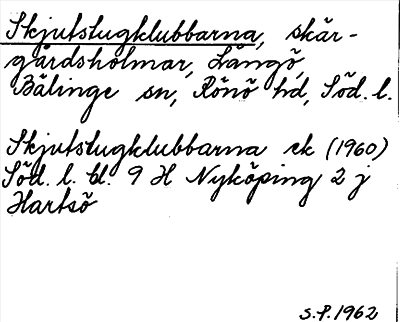 Skjutstugklubbarna, skär-
gårdsholmar, Långö,
Bälinge sn, Rönö hd, Söd. l.
Skjutstugklubbarna ek (1960)
Söd. l. bl. 9 H Nyköping 2 j
Hartsö
S.P. 1962